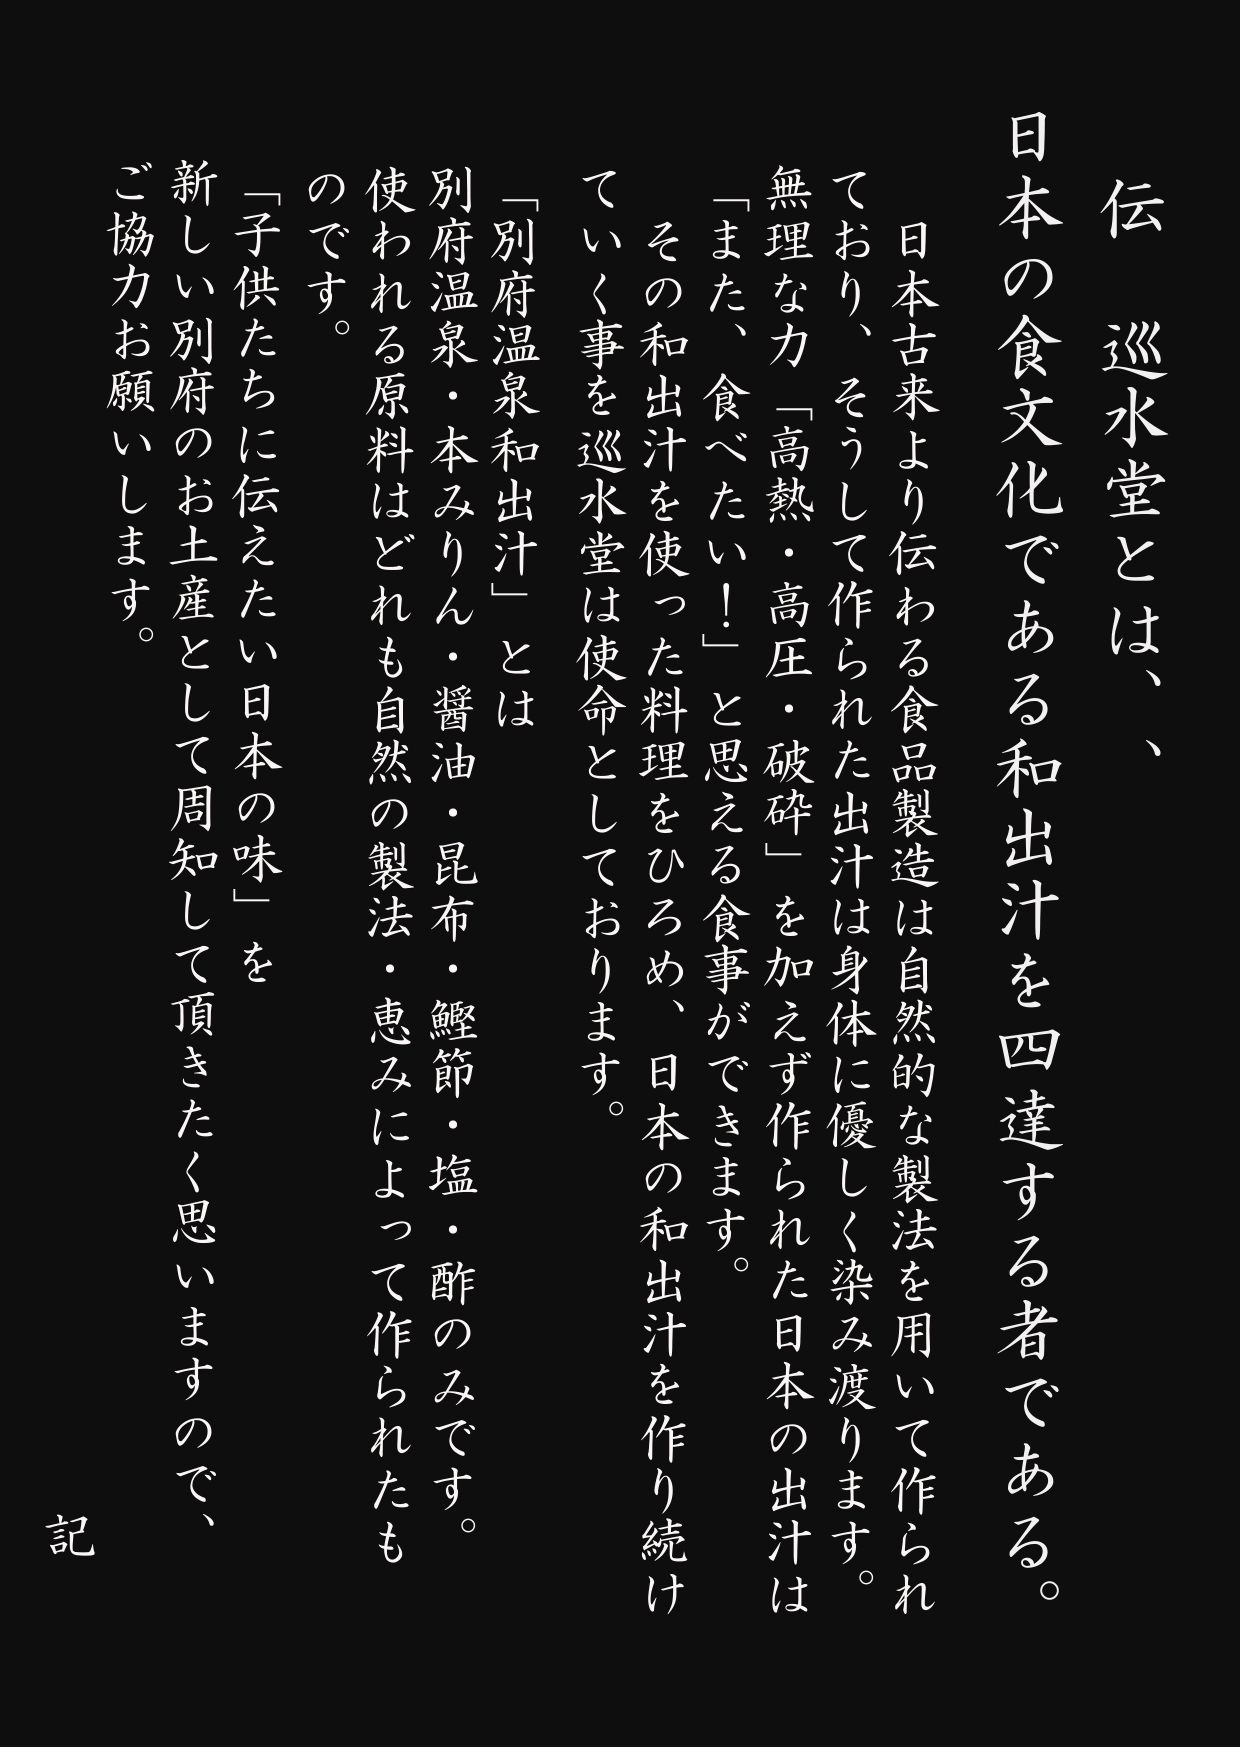 伝　巡水堂とは、、
日本の食文化である和出汁を四達する者である。
日本古来より伝わる食品製造は自然的な製法を用いて作られ
ており、そうして作られた出汁は身体に優しく染み渡ります。
無理な力「高熱・高圧・破砕」を加えず作られた日本の出汁は
「また、食べたい！」と思える食事ができます。
その和出汁を使った料理をひろめ、日本の和出汁を作り続け
ていく事を巡水堂は使命としております。
「別府温泉和出汁」とは
別府温泉・本みりん・醤油・昆布・鰹節・塩・酢のみです。
使われる原料はどれも自然の製法・恵みによって作られたも
のです。
「子供たちに伝えたい日本の味」を
新しい別府のお土産として周知して頂きたく思いますので、
ご協力お願いします。
記